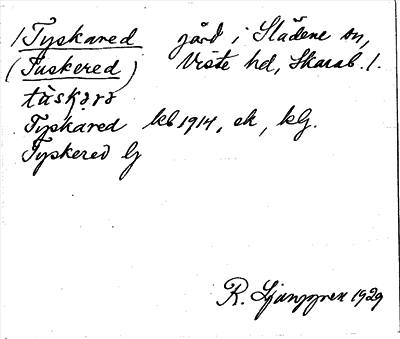 / Tyskared gård i Slädene sn,
(Tuskered) Viste hd, Skarab. l.
Tyskared kb 1914, ek, kG.
Tyskered G
R. Ljunggren 1929